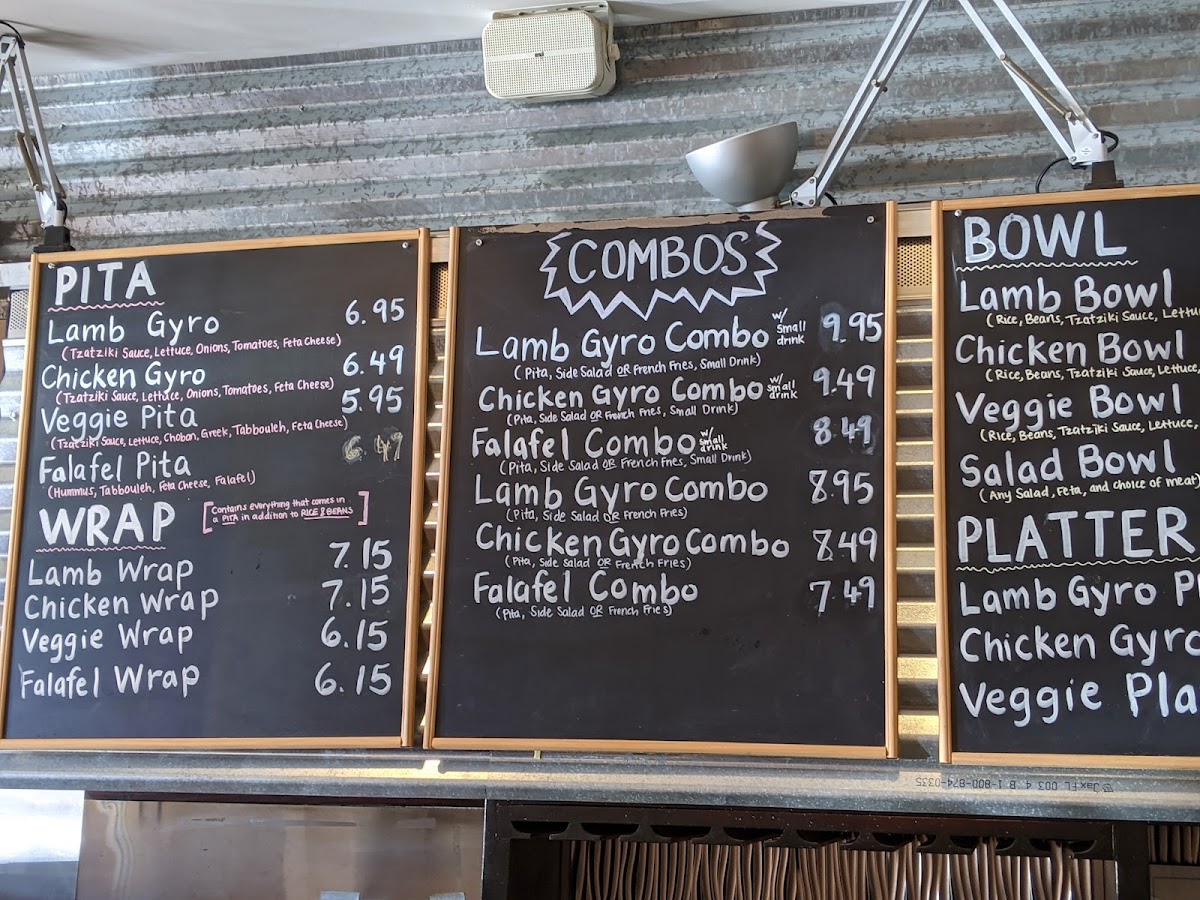 PITA
Lamb Gyro 6.95
(Tzatziki Sauce, Lettuce, Onions, Tomatoes, Feta Cheese)
Chicken Gyro 6.49
(Tzatziki Sauce, Lettuce, Onions, Tomatoes, Feta Cheese)
Veggie Pita 5.95
(Tzatziki Sauce, Lettuce, Choban, Greek, Tabbouleh, Feta Cheese)
Falafel Pita 6.49
(Hummus, Tabbouleh, Feta Cheese, Falafel)
WRAP
[Contains everything that comes in
a PITA in addition to RICE & BEANS]
Lamb Wrap 7.15
Chicken Wrap 7.15
Veggie Wrap 6.15
Falafel Wrap 6.15
COMBOS
Lamb Gyro Combo w/ small drink 9.95
(Pita, Side Salad OR French Fries, Small Drink)
Chicken Gyro Combo w/ small drink 9.49
(Pita, Side Salad OR French Fries, Small Drink)
Falafel Combo w/ small drink 8.49
(Pita, Side Salad OR French Fries, Small Drink)
Lamb Gyro Combo 8.95
(Pita, Side Salad OR French Fries)
Chicken Gyro Combo 8.49
(Pita, Side Salad OR French Fries)
Falafel Combo 7.49
(Pita, Side Salad OR French Fries)
BOWL
Lamb Bowl
(Rice, Beans, Tzatziki Sauce, Lettu
Chicken Bowl
(Rice, Beans, Tzatziki Sauce, Lettuce,
Veggie Bowl
(Rice, Beans, Tzatziki Sauce, Lettuce,
Salad Bowl
(Any Salad, Feta, and choice of meat)
PLATTER
Lamb Gyro P
Chicken Gyro
Veggie Pla
Jax FL 003 4 B 1-800-874-0335